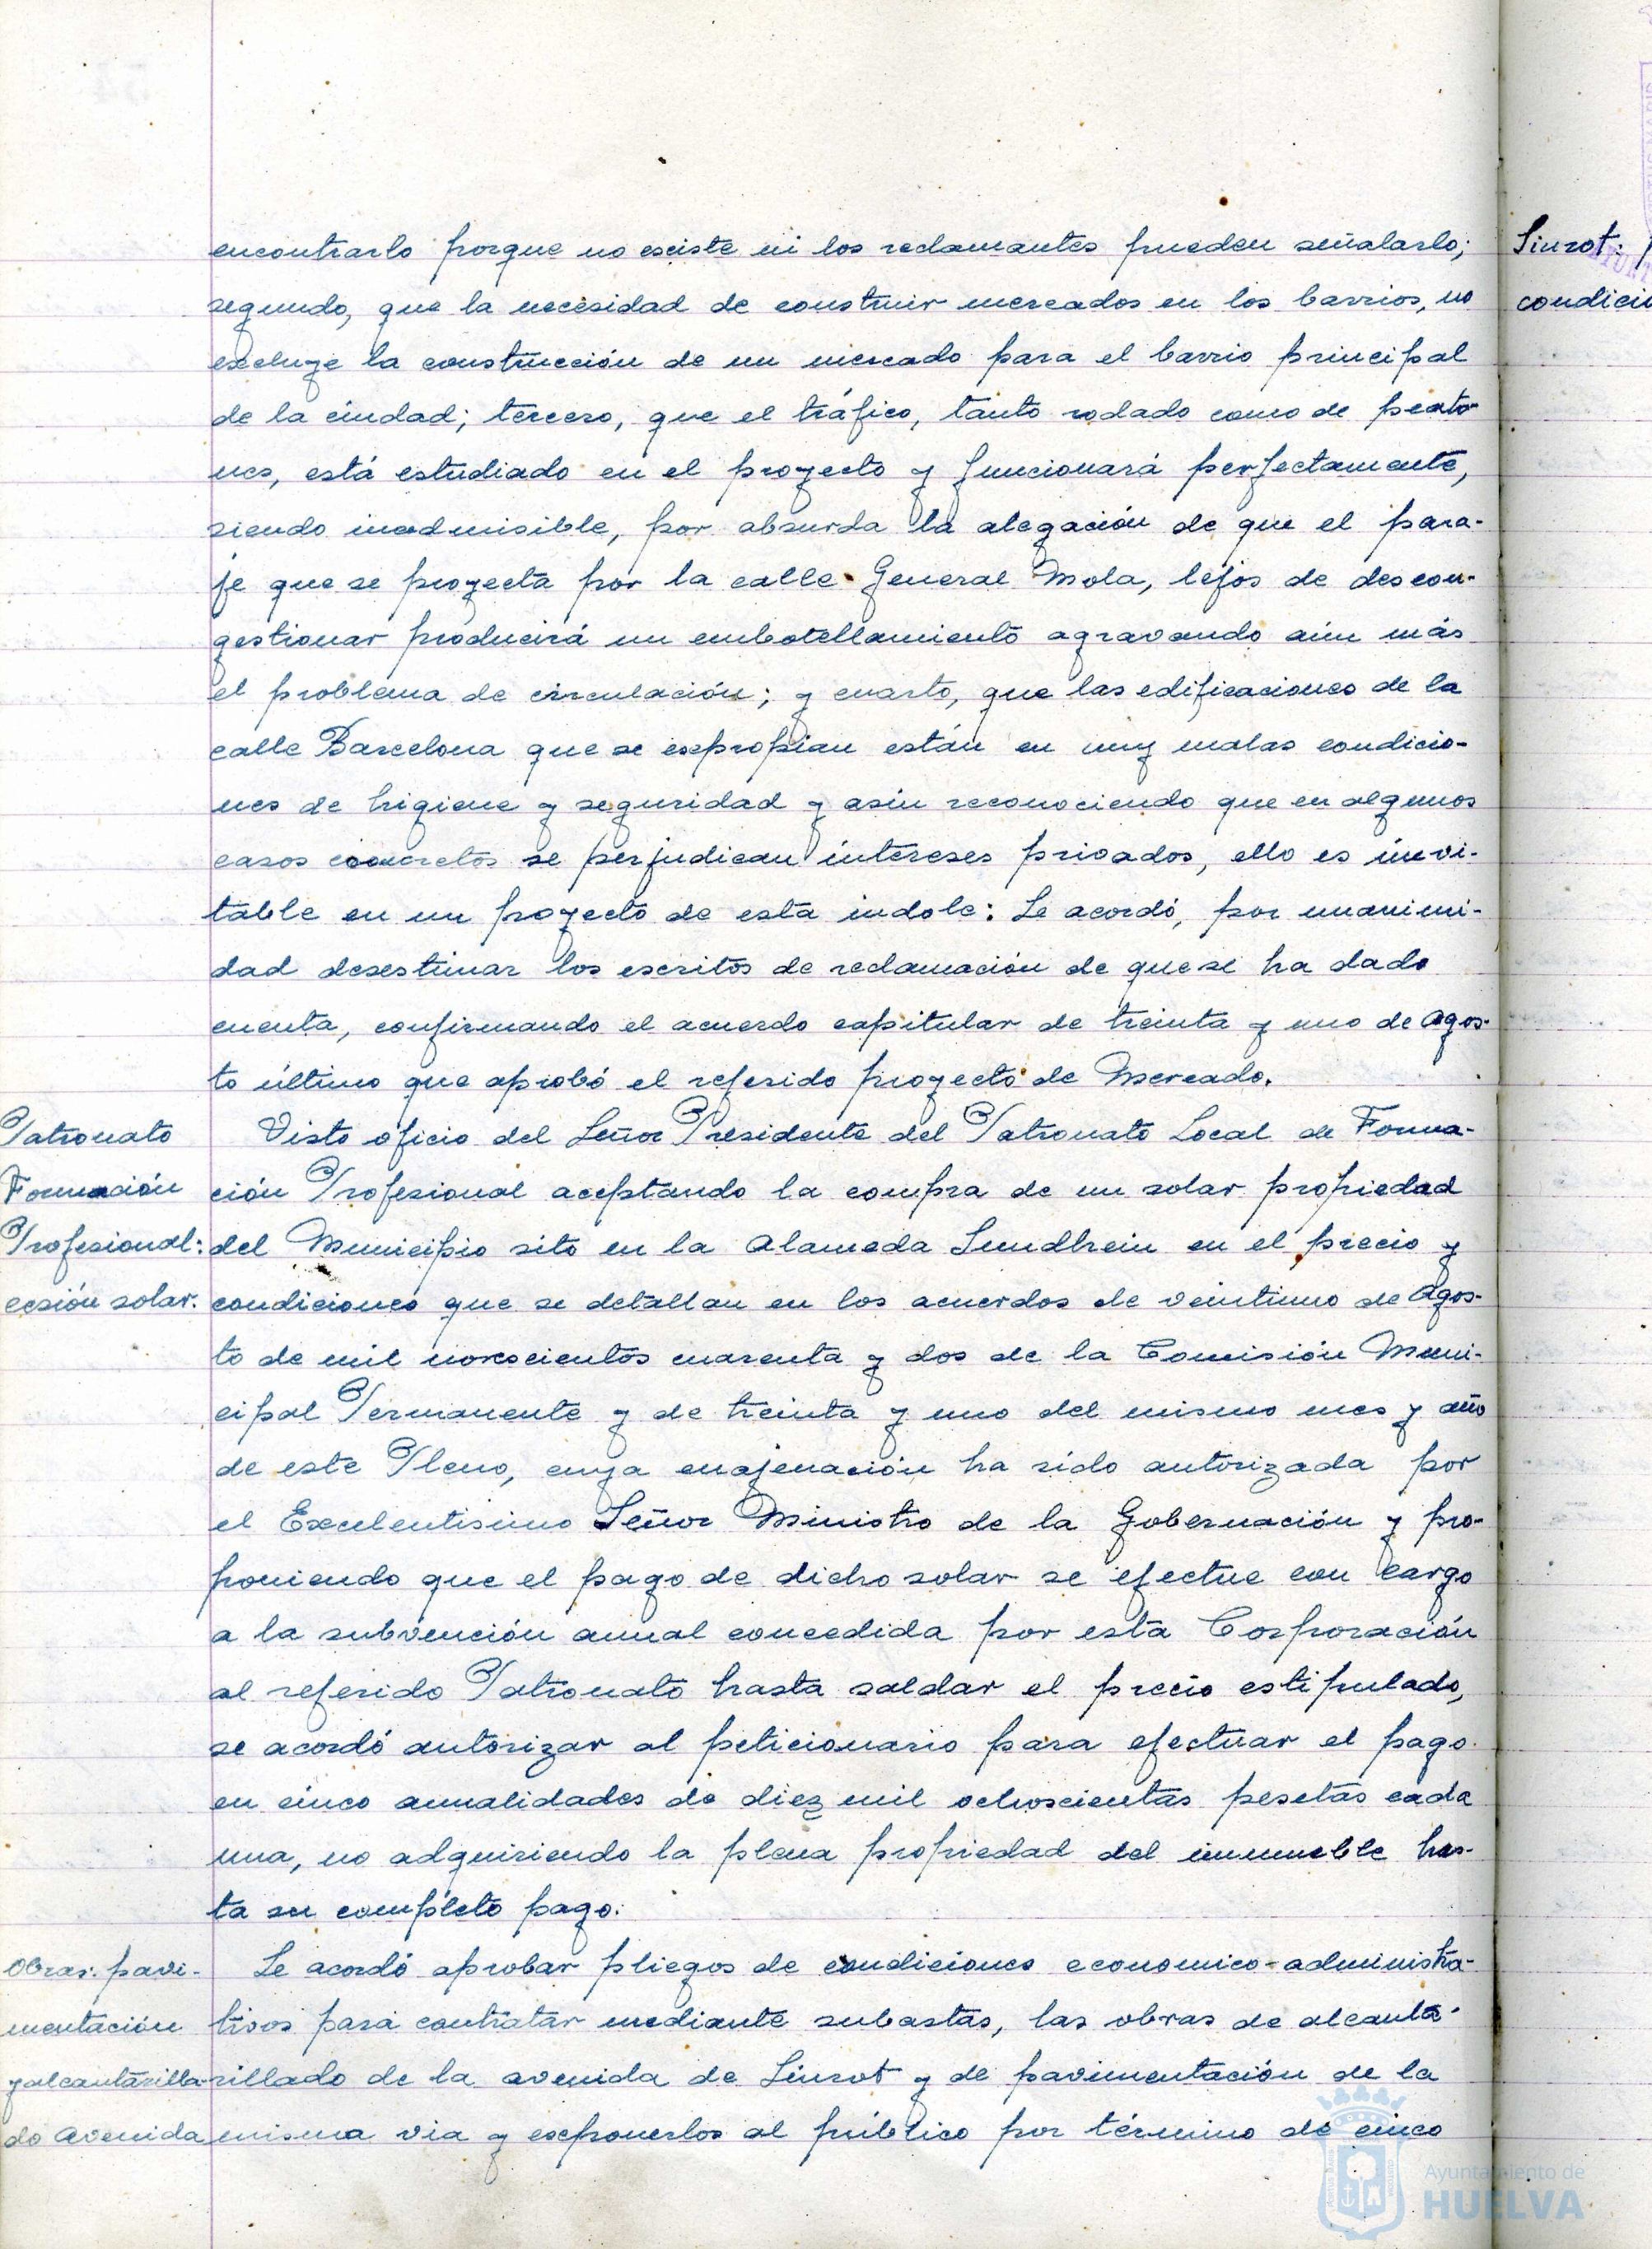 encontrarlo porque no existe ni los reclamantes pueden señalarlo;
segundo, que la necesidad de construir mercados en los barrios, no
excluye la construcción de un mercado para el barrio principal
de la ciudad; tercero, que el tráfico, tanto rodado como de peato-
nes, está estudiado en el proyecto y funcionará perfectamente,
siendo inadmisible, por absurda la alegación de que el para-
je que se proyecta por la calle General Mola, lejos de descon-
gestionar producirá un embotellamiento agravando aún más
el problema de circulación; y cuarto, que las edificaciones de la
calle Barcelona que se expropian están en muy malas condicio-
nes de higiene y seguridad y asín reconociendo que en algunos
casos concretos se perjudican intereses privados, ello es inevi-
table en un proyecto de esta indole: Se acordó, por unanimi-
dad desestimar los escritos de reclamación de que se ha dado
cuenta, confirmando el acuerdo capitular de treinta y uno de Agos-
to último que aprobó el referido proyecto de Mercado.
Patronato
Formación
Profesional:
cesión solar.
Visto oficio del Señor Presidente del Patronato Local de Forma-
ción Profesional aceptando la compra de un solar propiedad
del Municipio sito en la Alameda Sundhein en el precio y
condiciones que se detallan en los acuerdos de veintiuno de Agos-
to de mil novecientos cuarenta y dos de la Comisión Muni-
cipal Permanente y de treinta y uno del mismo mes y año
de este Pleno, cuya enajenación ha sido autorizada por
el Excelentisimo Señor Ministro de la Gobernación y pro-
poniendo que el pago de dicho solar se efectue con cargo
a la subvención anual concedida por esta Corporación
al referido Patronato hasta saldar el precio estipulado,
se acordó autorizar al peticionario para efectuar el pago
en cinco anualidades de diez mil ochoscientas pesetas cada
una, no adquiriendo la plena propiedad del inmueble has-
ta su completo pago.
Obras: pavi-
mentación
y alcantarilla-
do Avenida
Se acordó aprobar pliegos de condiciones economico-administra-
tivos para contratar mediante subastas, las obras de alcanta-
rillado de la avenida de Siurot y de pavimentación de la
misma via y exponerlos al público por término de cinco
Siurot:
condicio
Ayuntamiento de
HUELVA